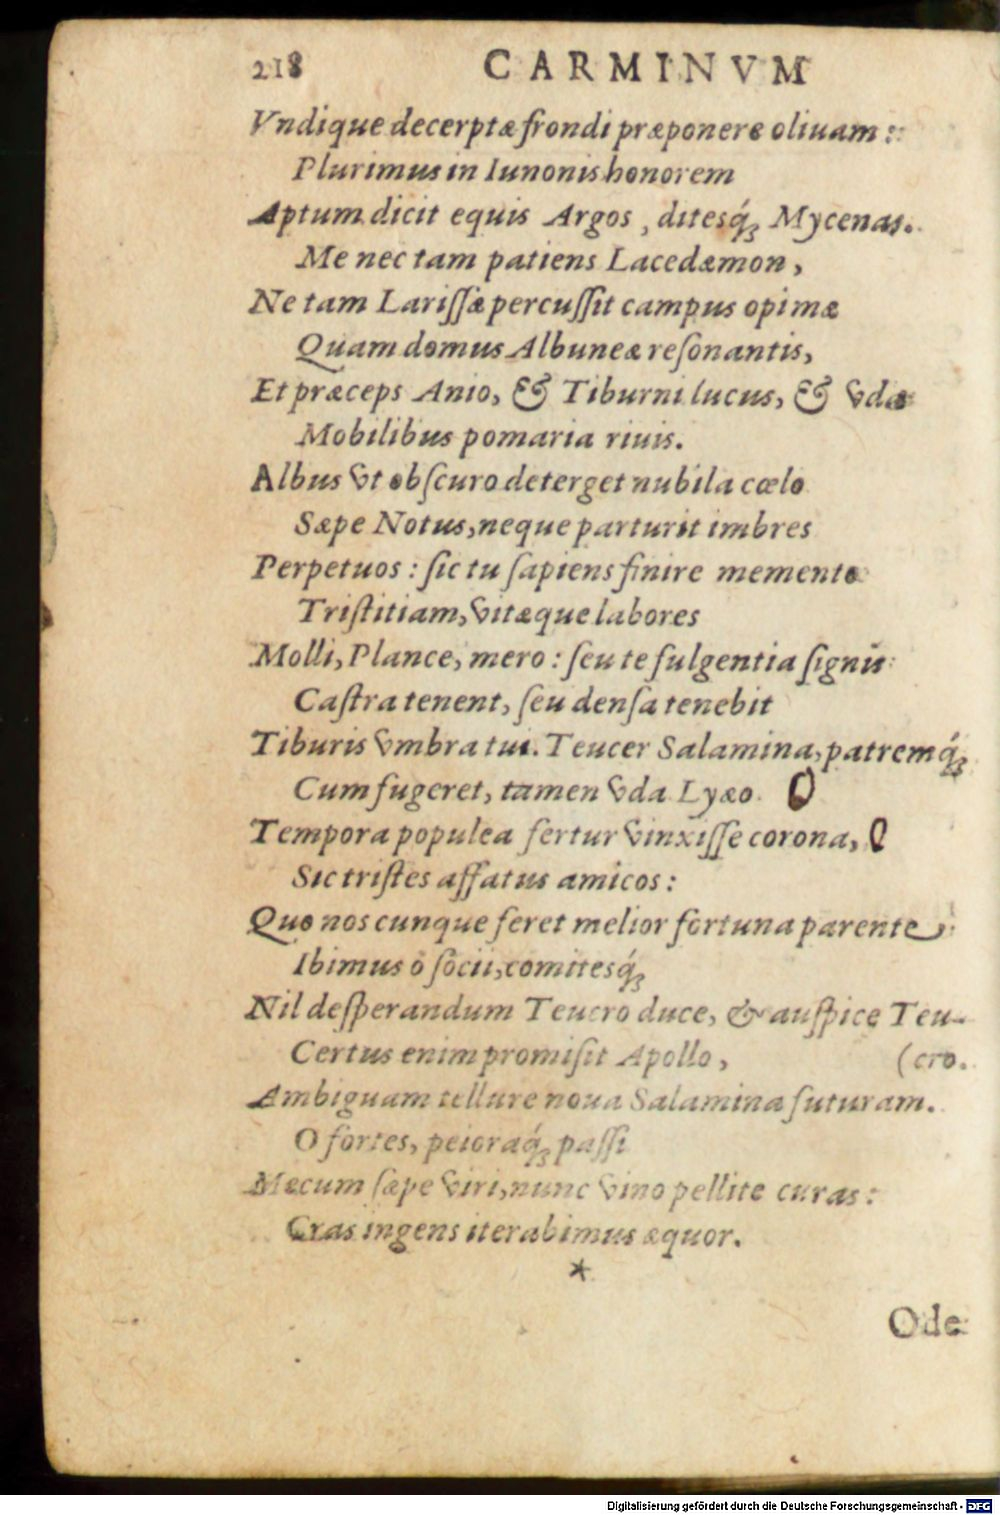 218 CARMINVM
Vndique decerptæ frondi præponere oliuam:
Plurimus in Iunonis honorem
Aptum dicit equis Argos, ditesq́; Mycenas.
Me nec tam patiens Lacedæmon,
Ne tam Larissæ percussit campus opimæ
Quam domus Albuneæ resonantis,
Et præceps Anio, & Tiburni lucus, & vda
Mobilibus pomaria riuis.
Albus vt obscuro deterget nubila cœlo
Sæpe Notus, neque parturit imbres
Perpetuos: sic tu sapiens finire memento
Tristitiam, vitæque labores
Molli, Plance, mero: seu te fulgentia signis
Castra tenent, seu densa tenebit
Tiburis vmbra tui. Teucer Salamina, patremq́;
Cum fugeret, tamen vda Lyæo
Tempora populea fertur vinxisse corona,
Sic tristes affatus amicos:
Quo nos cunque feret melior fortuna parente,
Ibimus ô socii, comitesq́;
Nil desperandum Teucro duce, & auspice Teu-
Certus enim promisit Apollo, (cro.
Ambiguam tellure noua Salamina futuram.
O fortes, peioraq́; passi
Mecum sæpe viri, nunc vino pellite curas:
Cras ingens iterabimus æquor.
*
Ode
Digitalisierung gefördert durch die Deutsche Forschungsgemeinschaft - DFG